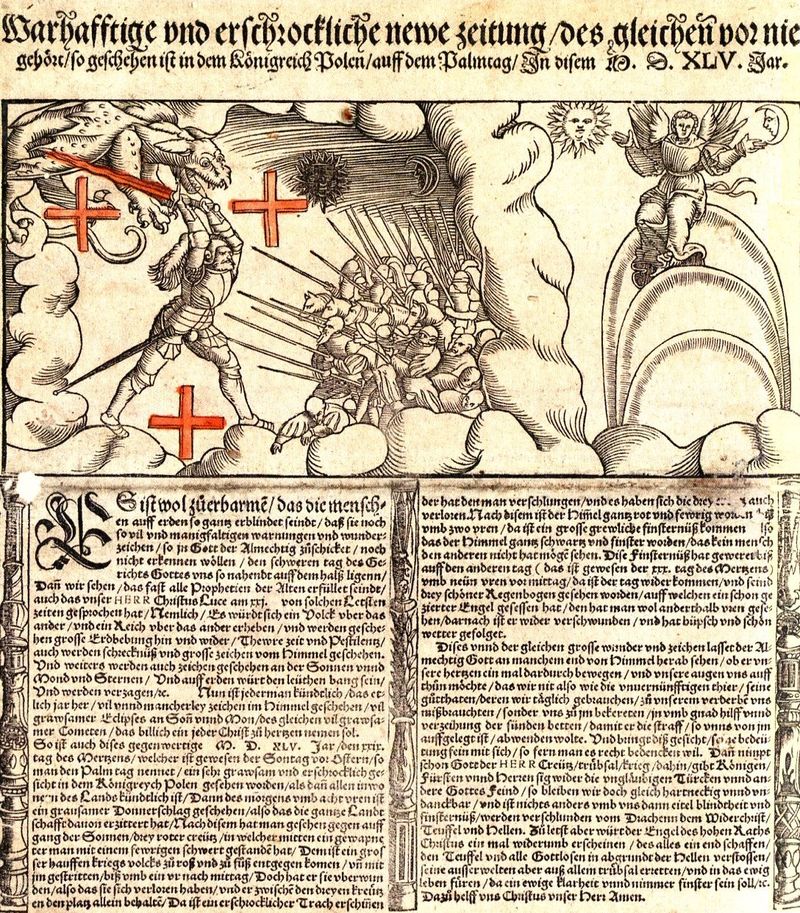 Warhafftige vnd erschrockliche newe zeitung/des gleichen vor nie
gehört/so geschehen ist in dem Königreich Polen/auff dem Palmtag/Jn disem M. D. XLV. Jar.
ES ist wol zů erbarmẽ/das die mensch-
en auff erden so gantz erblindet seindt/daß sie noch
so vil vnd manigfaltigen warnungen vnd wunder
zeichen/so jn Gott der Almechtig zůschicket/noch
nicht erkennen wöllen/den schweren tag des Ge-
richts Gottes vns so nahendt auff dem halß ligenn/
Dañ wir sehen/das fast alle Prophetien der Alten erfüllet seindt/
auch das vnser HERR Christus Luce am xxj. von solchen Letsten
zeiten gesprochen hat/Nemlich/Es würdt sich ein Volck vber das
ander/vnd ein Reich vber das ander erheben/vnd werden gesche-
hen grosse Erdbebung hin vnd wider/Thewre zeit vnd Pestilentz/
auch werden schrecknüß vnd grosse zeichen vom Himmel geschehen.
Vnd weiters werden auch zeichen geschehen an der Sonnen vnnd
Mond vnd Sternen/Vnd auff erden würt den leüthen bang sein/
Vnd werden verzagen/ꝛc. Nun ist jederman kündtlich/das et-
lich jar her/vil vnnd mancherley zeichen im Himmel geschehen/vil
grawsamer Eclipses an Soñ vnnd Mon/des gleichen vil grawsa-
mer Cometen/das billich ein jeder Christ zů hertzen nemen sol.
So ist auch dises gegenwertige M. D. XLV. Jar/den xxix.
tag des Mertzens/welcher ist gewesen der Sontag vor Ostern/so
man den Palm tag nennet/ein sehr grawsam vnd erschrocklich ge-
sicht in dem Königreych Polen gesehen worden/als dañ allen inwo
nern des Lands kündtlich ist/Dann des morgens vmb acht vren ist
ein grausamer Donnerschlag geschehen/also das die gantze Landt
schafft dauon erzittert hat/Nach disem hat man gesehen gegen auff
gang der Sonnen/drey roter creütz/in welcher mitten ein gewapne
ter man mit einem fewrigen schwert gestandẽ hat/Dem ist ein gros
ser hauffen kriegs volcks zů roß vnd zů fůß entgegen komen/vñ mit
jm gestritten/biß vmb ein vr nach mittag/Doch hat er sie vberwun
den/also das sie sich verloren haben/vnd er zwischen den dreyen kreütz
en den platz allein behaltẽ/Da ist ein erschrocklicher Trach erschinen
der hat den man verschlungen/vnd es haben sich die drey auch
verloren. Nach disem ist der Himel gantz rot vnd fewrig
vmb zwo vren/da ist ein grosse grewliche finsternüß kommen also
das der Himmel gantz schwartz vnd finster worden/das kein mensch
den anderen nicht hat mögẽ sehen. Dise Finsternüß hat geweret biß
auff den anderen tag (das ist gewesen der xxx. tag des Mertzens)
vmb neün vren vor mittag/da ist der tag wider kommen/vnd seind
drey schöner Regenbogen gesehen worden/auff welchen ein schon ge
zierter Engel gesessen hat/den hat man wol anderthalb vren gese-
hen/darnach ist er wider verschwunden/vnd hat hüpsch vnd schön
wetter gefolget.
Dises vnnd der gleichen grosse wunder vnd zeichen lasset der Al-
mechtig Gott an manchem end von Himmel herab sehen/ob er vn-
sere hertzen ein mal dardurch bewegen/vnd vnsere augen vns auff
thůn möchte/das wir nit also wie die vnuernünfftigen thier/seine
gůtthaten/deren wir täglich gebrauchen/zů vnserem verderbẽ vns
mißbrauchten/sonder vns zů jm bekereten/jn vmb gnad hilff vnnd
verzeihung der sünden betten/damit er die straff/so vnns von jm
auffgelegt ist/abwenden wolte. Vnd bringt diß gesicht/so ge bedeü
tung sein mit sich/so fern man es recht bedencken wil. Dañ nimpt
schon Gott der HERR Creütz/trübsal/krieg/dahin/gibt Königen/
Fürsten vnnd Herren sig wider die vngläubigen Türcken vnnd an-
dere Gottes Feind/so bleiben wir doch gleich hartneckig vnnd vn-
danckbar/vnd ist nichts anders vmb vns dann eitel blindtheit vnd
finsternüß/werden verschlunden vom Drachenn dem Widerchrist/
Teuffel vnd Hellen. Zů letst aber würt der Engel des hohen Raths
Christus ein mal widerumb erscheinen/des alles ein end schaffen/
den Teuffel vnd alle Gottlosen in abgrundt der Hellen verstossen/
seine ausserwelten aber auß allem trübsal erretten/vnd in das ewig
leben füren/da ein ewige klarheit vnnd nimmer finster sein soll/ꝛc.
Dazů helff vns Christus vnser Herr Amen.